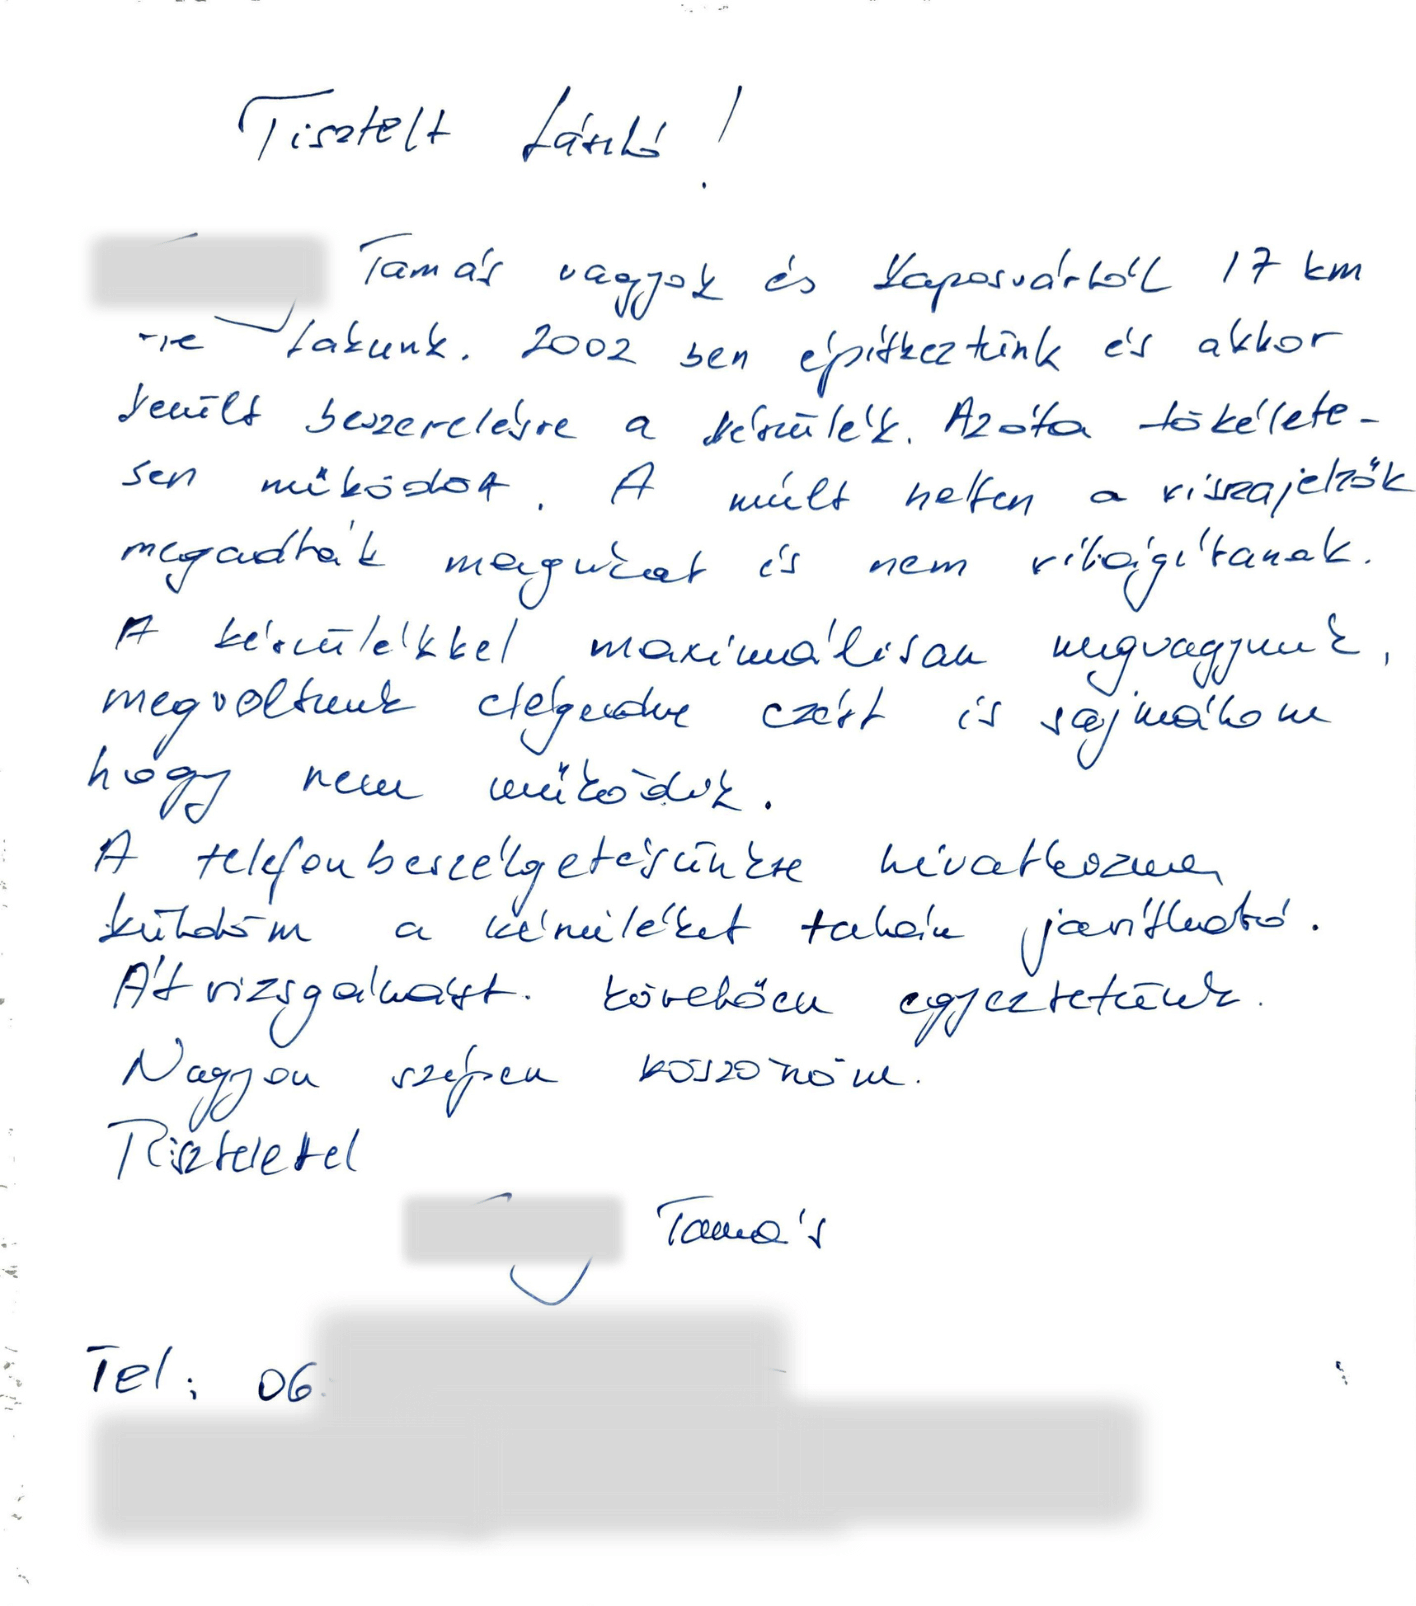 Tisztelt László!
Tamás vagyok és Kaposvártól 17 km
-re lakunk. 2002 ben építkeztünk és akkor
került beszerelésre a készülék. Azóta tökélete-
sen működött. A múlt héten a visszajelzők
megadták magukat és nem világítanak.
A készülékkel maximálisan megvagyunk,
megvoltunk elégedve ezért is sajnálom
hogy nem működik.
A telefonbeszélgetésünkre hivatkozva
küldöm a készüléket talán javítható.
Átvizsgálást. követően egyeztetünk.
Nagyon szépen köszönöm.
Tisztelettel
Tamás
Tel: 06